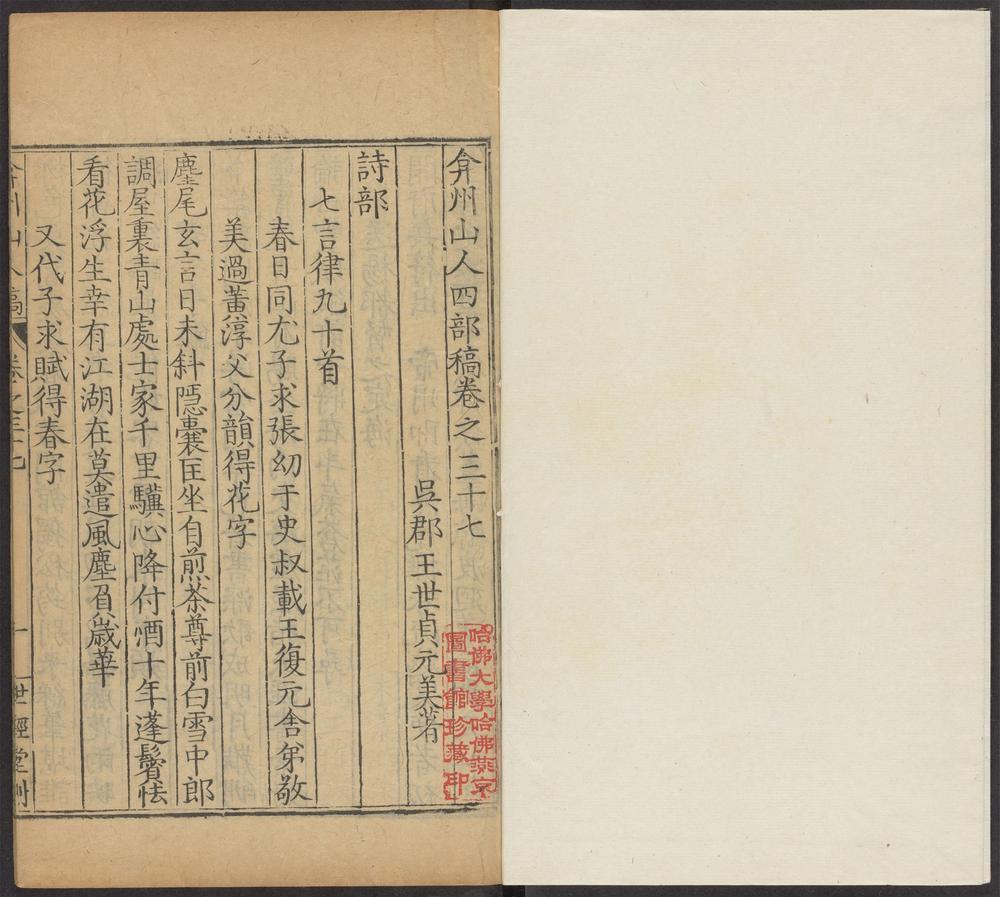 弇州山人四部稿卷之三十七
吳郡王世貞元美著
詩部
七言律九十首
春日同尤子求張幼于史叔載王復元舍弟敬
美過黃淳父分韻得花字
麈尾玄言日未斜隱囊匡坐自煎茶尊前白雪中郎
調屋裏青山處士家千里驥心降付酒十年蓬鬢怯
看花浮生幸有江湖在莫遣風塵損歲華
又代子求賦得春字
弇州山人稿 卷之三十七 一 世經堂刻
哈佛大學哈佛燕京
圖書館珍藏印